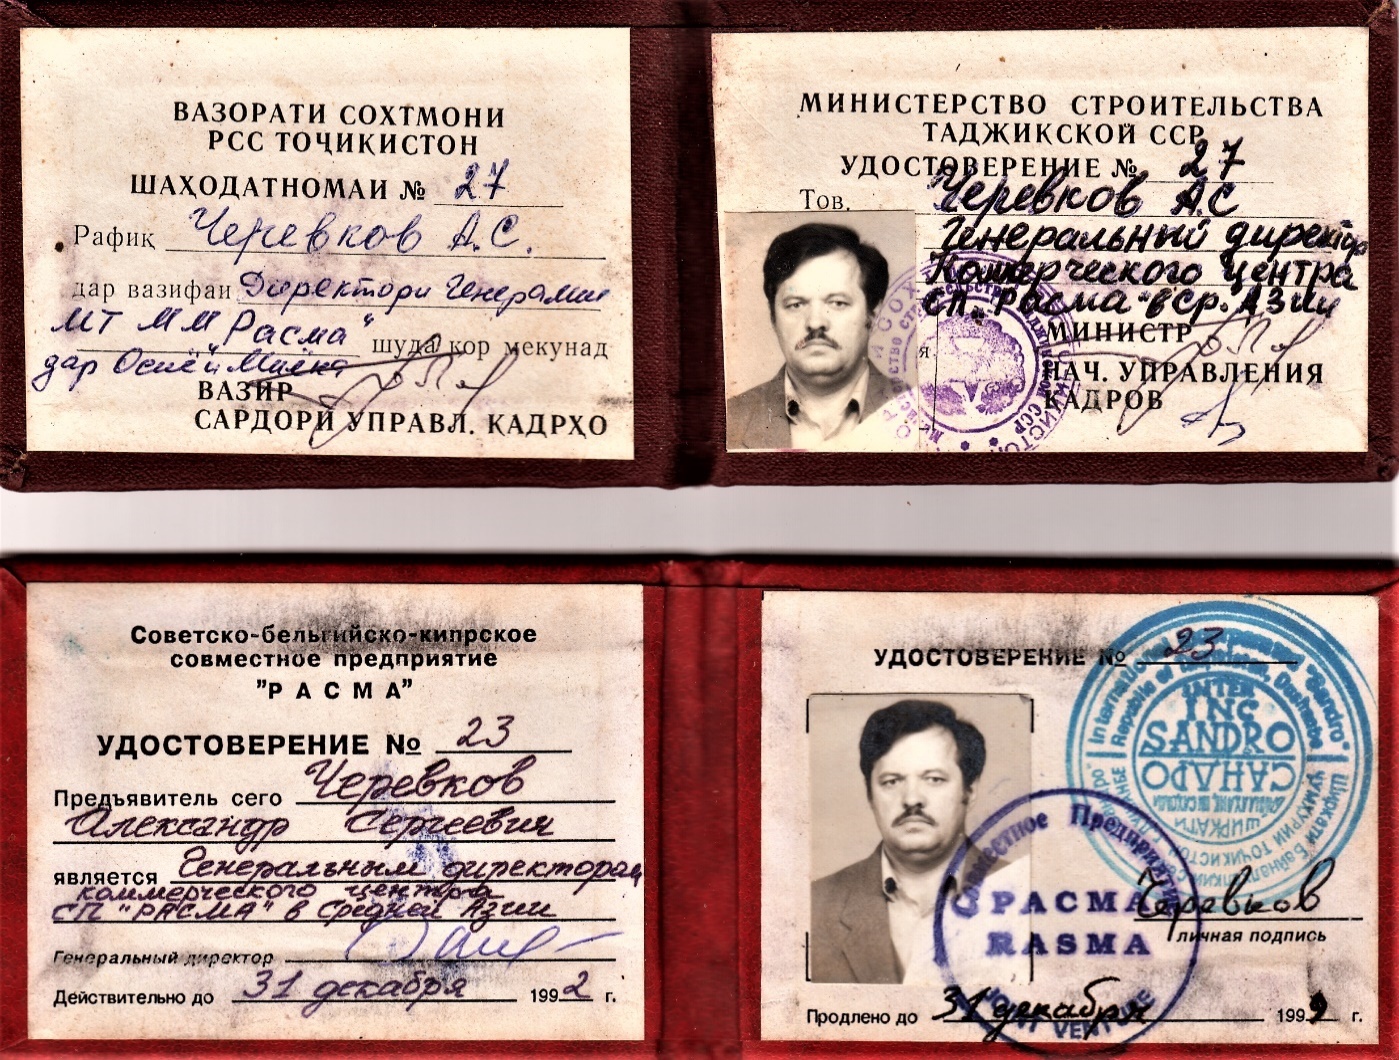 ВАЗОРАТИ СОХТМОНИ
РСС ТОҶИКИСТОН
ШАҲОДАТНОМАИ № 27
Рафиқ Черевков А.С.
дар вазифаи Директори Генералии
МТ ММ "Расма"
шуда кор мекунад
дар Осиёи Миёна
ВАЗИР
САРДОРИ УПРАВЛ. КАДРҲО
МИНИСТЕРСТВО СТРОИТЕЛЬСТВА
ТАДЖИКСКОЙ ССР
УДОСТОВЕРЕНИЕ № 27
Тов. Черевков А.С
Генеральный директор
Коммерческого центра
СП "Расма" в ср. Азии
МИНИСТР
НАЧ. УПРАВЛЕНИЯ
КАДРОВ
Советско-бельгийско-кипрское
совместное предприятие
"РАСМА"
УДОСТОВЕРЕНИЕ № 23
Предъявитель сего Черевков
Александр Сергеевич
является Генеральным директором
коммерческого центра
СП "РАСМА" в Средней Азии
Генеральный директор
Действительно до 31 декабря 1992 г.
УДОСТОВЕРЕНИЕ № 23
INTER
INC
SANDRO
САНДО
ШИРКАТИ
Совместное Предприятие
РАСМА
RASMA
JOINT VENTURE
Черевков
личная подпись
Продлено до 31 декабря 1999 г.